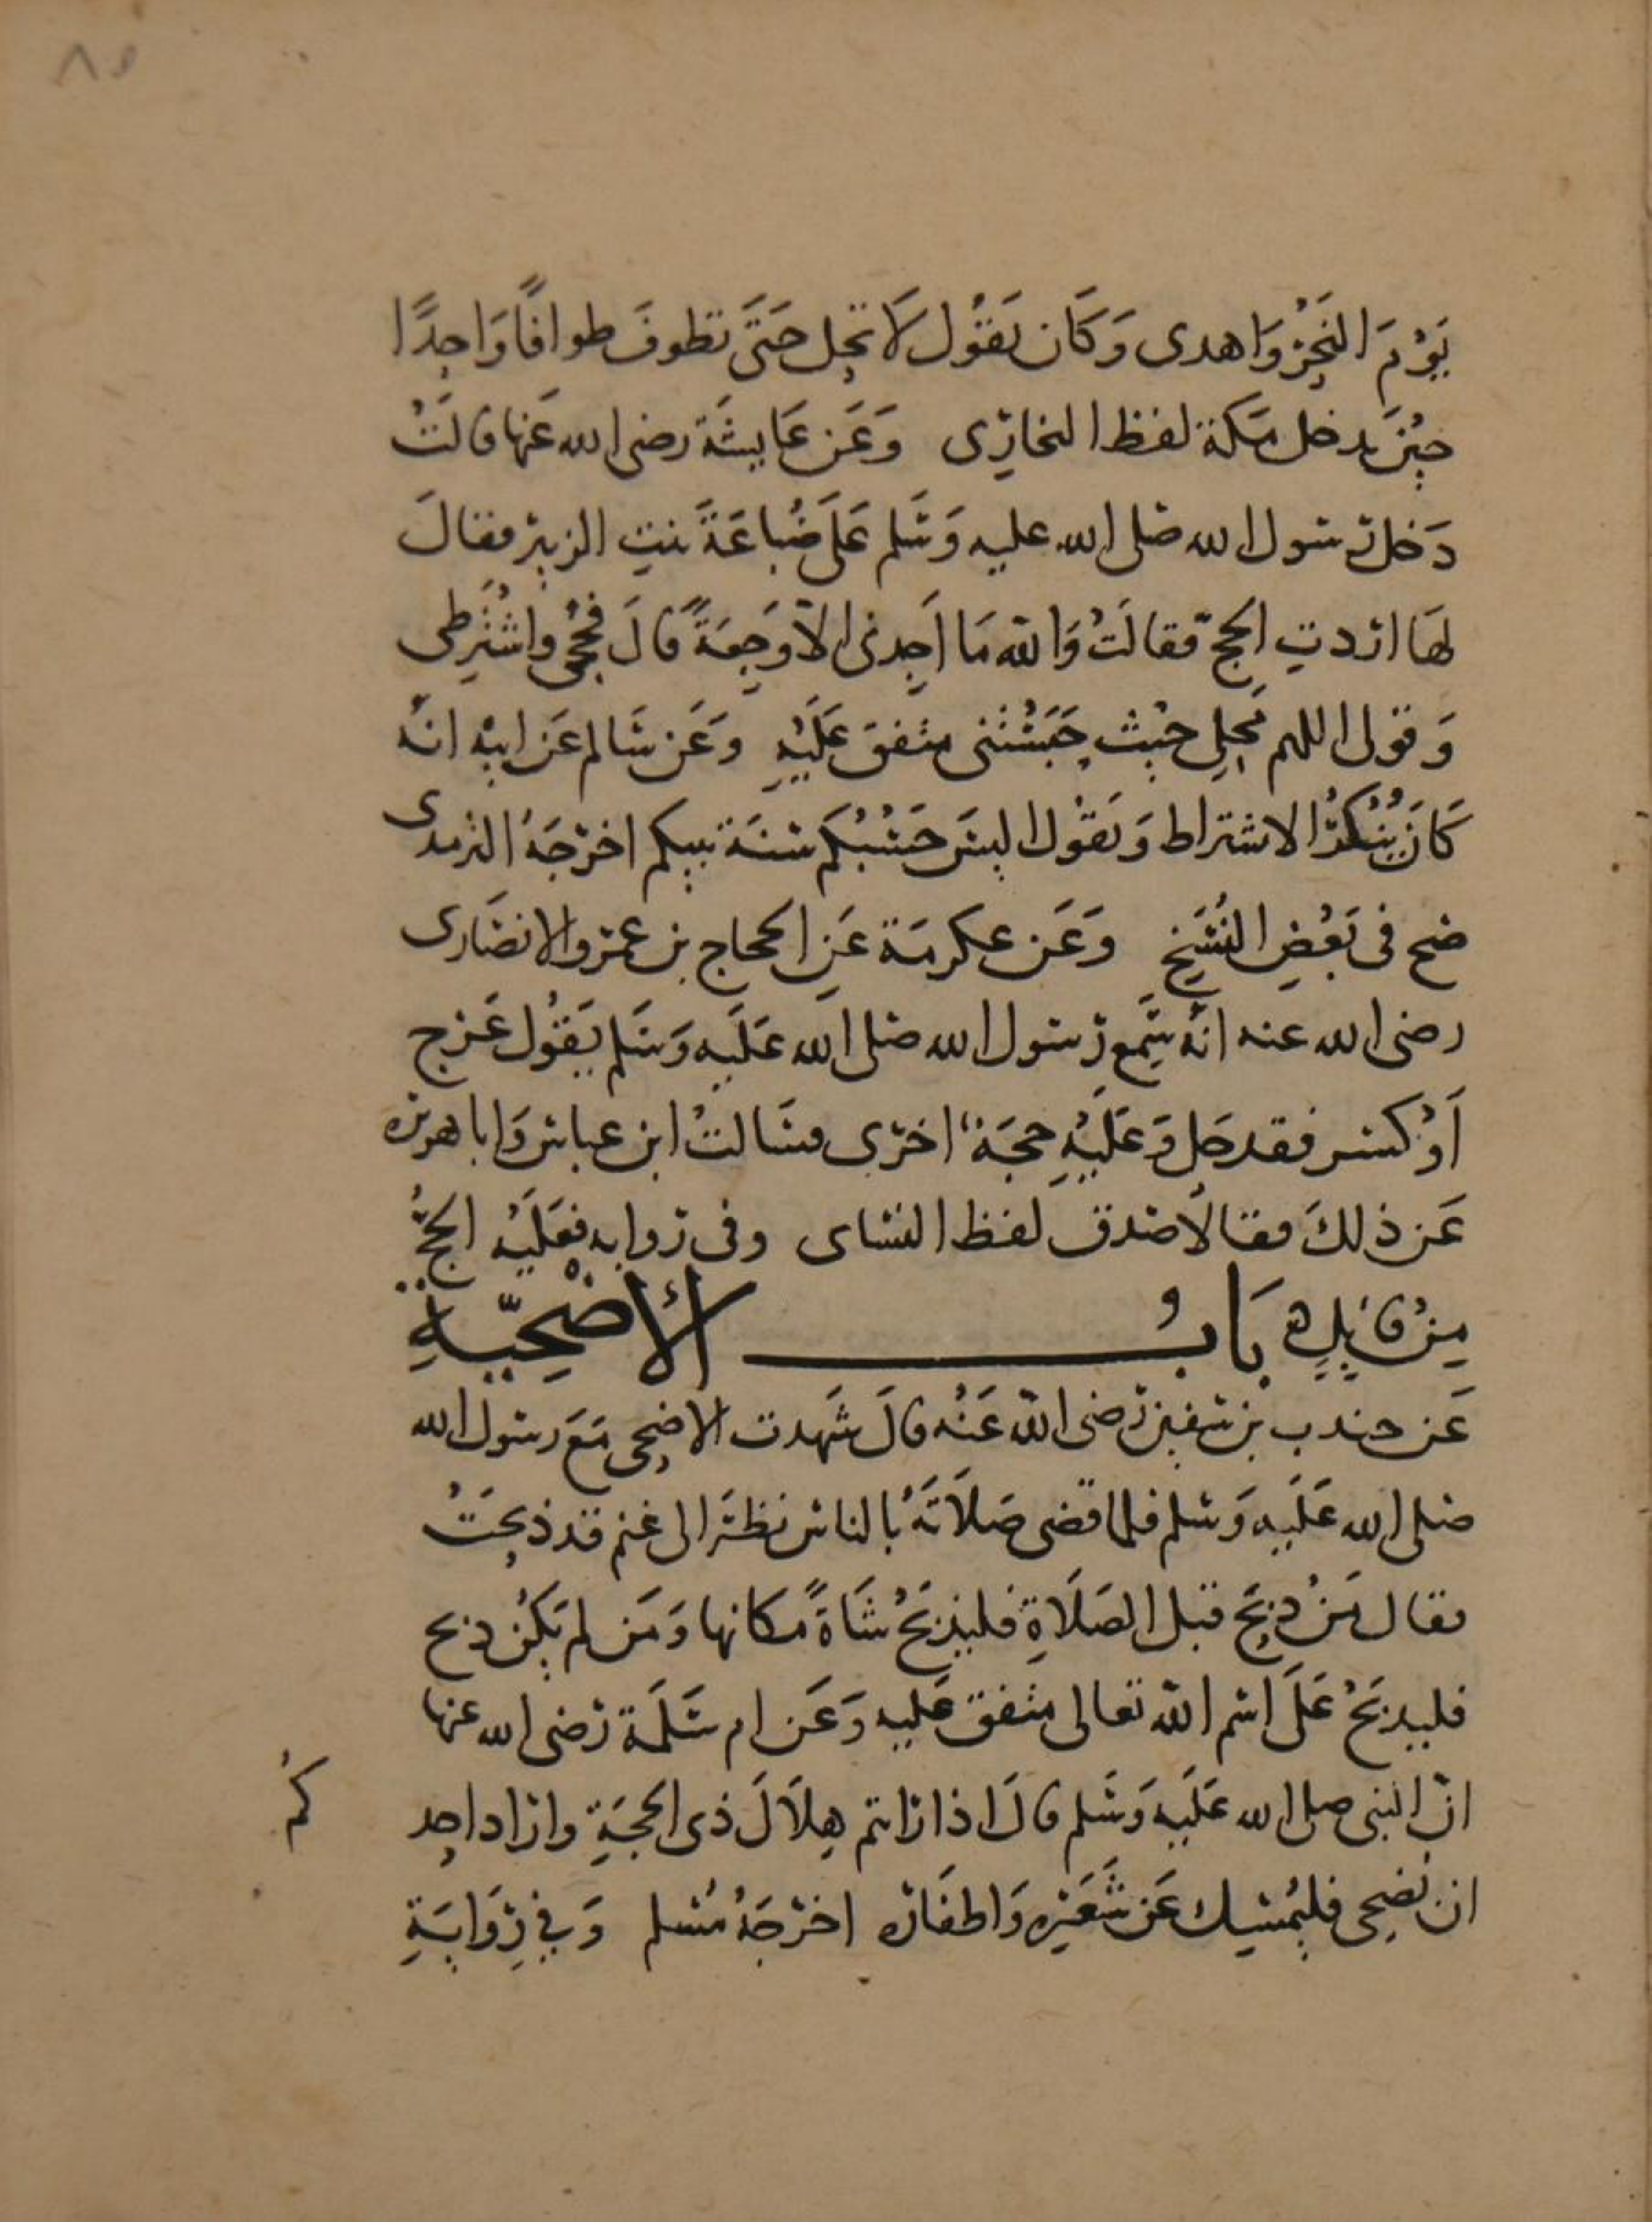 ٨٥
يَوْمَ النَّحْرِ وَاهدى وَكَان يَقُول لَا تحِل حَتَّى تطوفَ طوافًا وَاحِدًا
حِيْنَ يدخل مَكة لفظ البخارِى وَعَن عَايِشَة رضى الله عَنها قالَتْ
دَخل رسول الله صلى الله عليه وَسَلم عَلَى ضُباعَةَ بنتِ الزبير فقالَ
لهَا اردتِ الحجّ فقالَتْ وَاللّه مَا اَجِدنى الاّ وَجِعَةً قالَ فحُجِّى واشْتَرِطى
وَقولى اللهم مَحِلِى حَيْث حَبَسْتَنى متفق عَلَيْهِ وَعَن سَالم عَن ابيْه انّه
كَانَ يُنْكِرُ الاشتراط وَيَقُول اليسَ حَسْبُكم سُنَة نبيكم اخرَجَهُ الترمدى
صح فى بَعْضِ النُسَخِ وَعَن عكرمَة عَنِ الحجاج بن عمرو الانصَارى
رضى الله عنه انّه سَمِع رَسول الله صلى الله عَلَيه وَسَلم يَقُول مَن عَرج
اَوْ كسر فقد حَل وَعَلَيْهِ حجَة اخرى فسَالتُ ابن عباس وَابا هريره
عَن ذلكَ فقالَا صَدق لفظ النسَاى وفى روايه فعَلَيْه الحجُّ
مِنْ قَابِلٍ ه بَابُ الأضْحِيّةِ
عَن جندب بن سفين رَضى اللّه عَنْه قالَ شهدت الاضحِى مَعَ رسول الله
صلى الله عَلَيه وَسَلم فلما قضى صَلَاتَهُ بالناس نظرَ الى غنم قد ذبِحَتْ
فقال مَنْ ذبَحَ قبل الصَلَاةِ فليذبَحْ شَاةً مكانها وَمَن لم يَكِنْ ذبح
فليذبَحْ عَلَى اسْمِ اللّه تعالى متفق عَليه وَعَن ام سَلَمَة رَضى الله عنها
انّ النبى صلى الله عَلَيه وَسَلم قالَ اذا رَايتم هِلَالَ ذى الحجَةِ واراد احِدكُم
ان يُضحِى فليُمْسِك عَن شَعَرِه وَاظفَاره اخرجَهُ مُسلم وَفِى رِوَايَةٍ